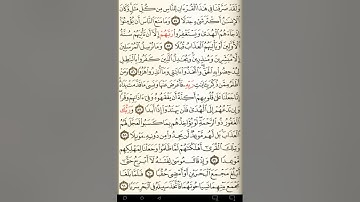 وَلَقَدْ صَرَّفْنَا فِي هَٰذَا ٱلْقُرْءَانِ لِلنَّاسِ مِن كُلِّ مَثَلٍ وَكَانَ
ٱلْإِنسَٰنُ أَكْثَرَ شَيْءٍ جَدَلًا ٥٤ وَمَا مَنَعَ ٱلنَّاسَ أَن يُؤْمِنُوٓا۟
إِذْ جَآءَهُمُ ٱلْهُدَىٰ وَيَسْتَغْفِرُوا۟ رَبَّهُمْ إِلَّآ أَن تَأْتِيَهُمْ سُنَّةُ
ٱلْأَوَّلِينَ أَوْ يَأْتِيَهُمُ ٱلْعَذَابُ قُبُلًا ٥٥ وَمَا نُرْسِلُ ٱلْمُرْسَلِينَ
إِلَّا مُبَشِّرِينَ وَمُنذِرِينَ وَيُجَٰدِلُ ٱلَّذِينَ كَفَرُوا۟ بِٱلْبَٰطِلِ
لِيُدْحِضُوا۟ بِهِ ٱلْحَقَّ وَٱتَّخَذُوٓا۟ ءَايَٰتِي وَمَآ أُنذِرُوا۟ هُزُوًا ٥٦ وَمَنْ
أَظْلَمُ مِمَّن ذُكِّرَ بِـَٔايَٰتِ رَبِّهِ فَأَعْرَضَ عَنْهَا وَنَسِيَ مَا قَدَّمَتْ يَدَاهُ
إِنَّا جَعَلْنَا عَلَىٰ قُلُوبِهِمْ أَكِنَّةً أَن يَفْقَهُوهُ وَفِيٓ ءَاذَانِهِمْ وَقْرًا
وَإِن تَدْعُهُمْ إِلَى ٱلْهُدَىٰ فَلَن يَهْتَدُوٓا۟ إِذًا أَبَدًا ٥٧ وَرَبُّكَ
ٱلْغَفُورُ ذُو ٱلرَّحْمَةِ لَوْ يُؤَاخِذُهُم بِمَا كَسَبُوا۟ لَعَجَّلَ لَهُمُ
ٱلْعَذَابَ بَل لَّهُم مَّوْعِدٌ لَّن يَجِدُوا۟ مِن دُونِهِ مَوْئِلًا ٥٨
وَتِلْكَ ٱلْقُرَىٰٓ أَهْلَكْنَٰهُمْ لَمَّا ظَلَمُوا۟ وَجَعَلْنَا لِمَهْلِكِهِم
مَّوْعِدًا ٥٩ وَإِذْ قَالَ مُوسَىٰ لِفَتَىٰهُ لَآ أَبْرَحُ حَتَّىٰٓ
أَبْلُغَ مَجْمَعَ ٱلْبَحْرَيْنِ أَوْ أَمْضِيَ حُقُبًا ٦٠ فَلَمَّا بَلَغَا
مَجْمَعَ بَيْنِهِمَا نَسِيَا حُوتَهُمَا فَٱتَّخَذَ سَبِيلَهُ فِي ٱلْبَحْرِ سَرَبًا ٦١